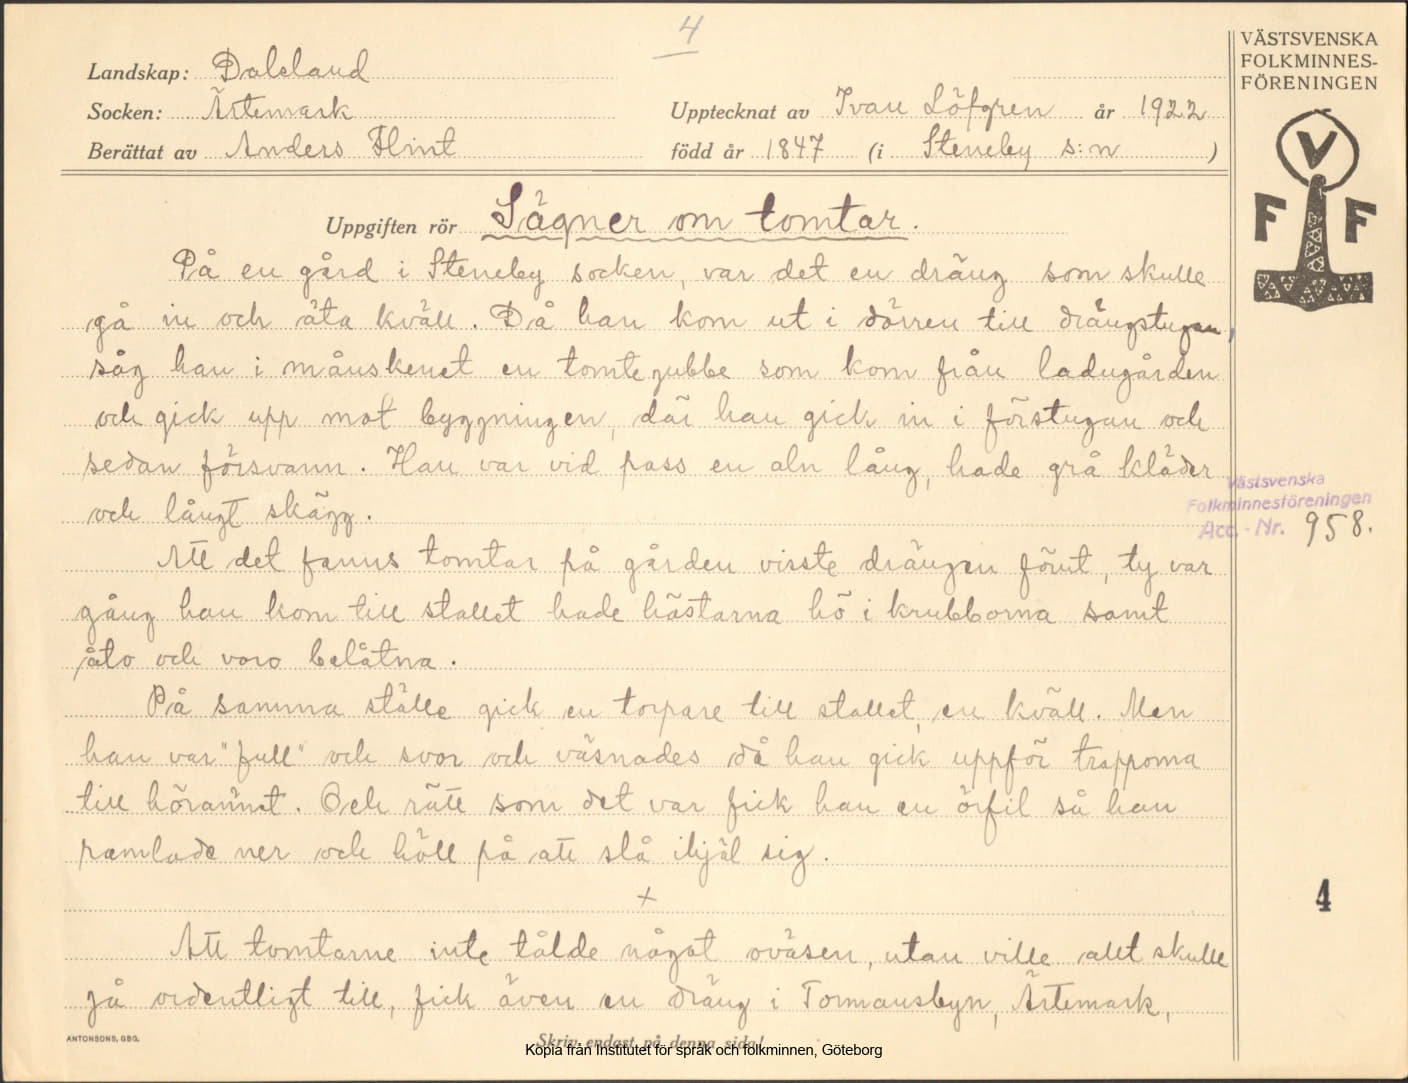 4
VÄSTSVENSKA
FOLKMINNES-
FÖRENINGEN
Landskap: Dalsland
Socken: Ärtemark
Upptecknat av Ivan Löfgren år 1922
Berättat av Anders Flint
född år 1847 (i Steneby s:n )
V
F F
Uppgiften rör Sägner om tomtar.
På en gård i Steneby socken, var det en dräng som skulle
gå in och äta kväll. Då han kom ut i dörren till drängstugan,
såg han i månskenet en tomtegubbe som kom från ladugården
och gick upp mot byggningen, där han gick in i förstugan och
sedan försvann. Han var vid pass en aln lång, hade grå kläder
och långt skägg.
Västsvenska
Folkminnesföreningen
Acc.-Nr. 958.
Att det fanns tomtar på gården visste drängen förut, ty var
gång han kom till stallet hade hästarna hö i krubborna samt
åto och voro belåtna.
På samma ställe gick en torpare till stallet, en kväll. Men
han var "full" och svor och väsnades då han gick uppför trapporna
till hörännet. Och rätt som det var fick han en örfil så han
ramlade ner och höll på att slå ihjäl sig.
+
4
Att tomtarne inte tålde något oväsen, utan ville allt skulle
gå ordentligt till, fick även en dräng i Tormansbyn, Ärtemark,
ANTONSONS, GBG.
Skriv endast på denna sida!
Kopia från Institutet för språk och folkminnen, Göteborg